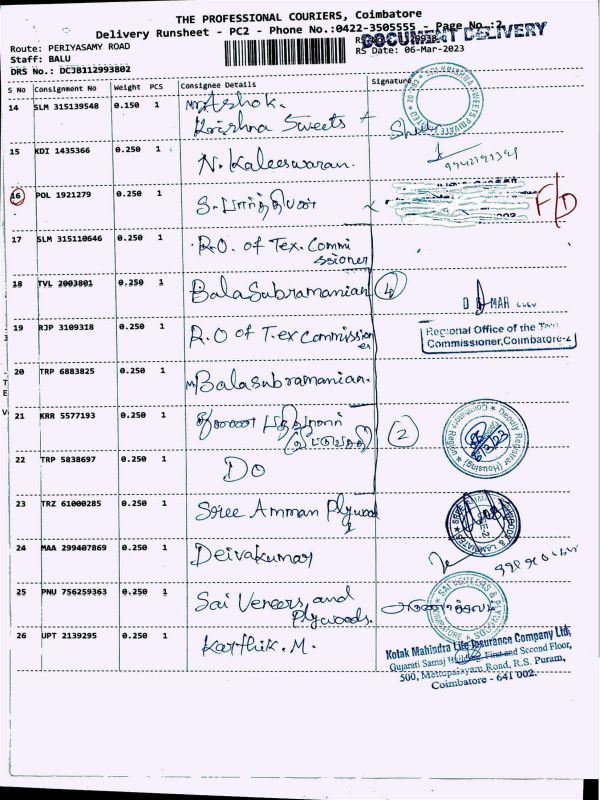 THE PROFESSIONAL COURIERS, Coimbatore
Delivery Runsheet - PC2 - Phone No.:0422-3505555 - Page No.:2
DOCUMENT DELIVERY
Route: PERIYASAMY ROAD
Staff: BALU
RS Date: 06-Mar-2023
DRS No.: DCJB112993802
S No Consignment No Weight PCS Consignee Details Signature
14 SLM 315139548 0.150 1 Mr Ashok.
Krishna Sweets
15 KDI 1435366 0.250 1 N. Kaleeswaran.
16 POL 1921279 0.250 1
F/D
17 SLM 315110646 0.250 1 R.O. of Tex. Commi
ssioner
18 TVL 2003801 0.250 1 BalaSubramanian 4
MAR
19 RJP 3109318 0.250 1 R.O of T.ex Commission
er
Regional Office of the
Commissioner, Coimbatore-2
20 TRP 6883825 0.250 1 M Balasubramanian.
21 KRR 5577193 0.250 1
2
Deputy Registrar (Housing)
6/3/23
22 TRP 5838697 0.250 1 DO
23 TRZ 61000285 0.250 1 Sree Amman Plywood
24 MAA 299407869 0.250 1 Deivakumar
25 PNU 756259363 0.250 1 Sai Veneers and
Plywoods.
SAI VENEERS & PLYWOODS
26 UPT 2139295 0.250 1 Karthik. M.
Kotak Mahindra Life Insurance Company Ltd,
Gujarati Samaj Building First and Second Floor,
500, Mettupalayam Road, R.S. Puram,
Coimbatore - 641 002.